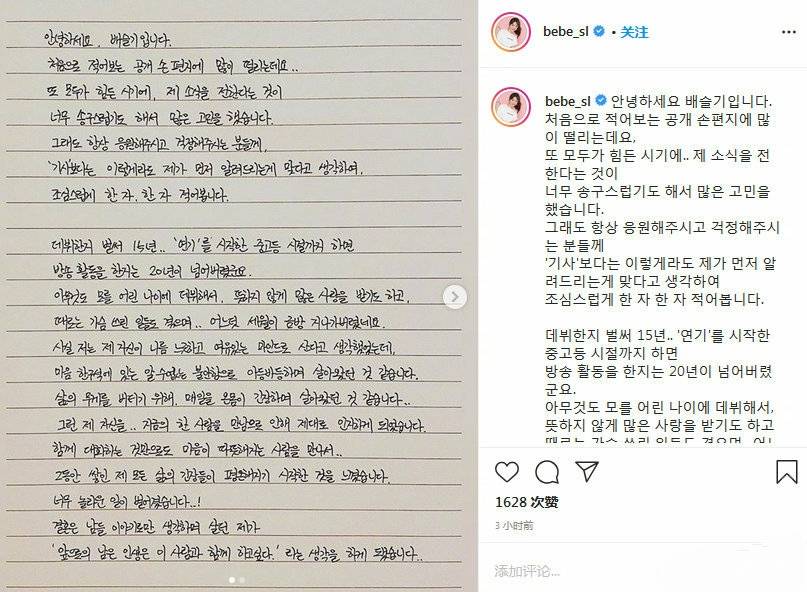 안녕하세요, 배슬기입니다.
처음으로 적어보는 공개 손편지에 많이 떨리는데요..
또 모두가 힘든 시기에, 제 소식을 전한다는 것이
너무 송구스럽기도 해서 많은 고민을 했습니다.
그래도 항상 응원해주시고 걱정해주시는 분들께,
'기사'보다는 이렇게라도 제가 먼저 알려드리는게 맞다고 생각하여,
조심스럽게 한 자, 한 자 적어봅니다.
데뷔한지 벌써 15년.. '연기'를 시작한 중고등 시절까지 하면
방송 활동을 한지는 20년이 넘어버렸군요.
아무것도 모를 어린 나이에 데뷔해서, 뜻하지 않게 많은 사랑을 받기도 하고,
때로는 가슴 쓰린 일들도 겪으며.. 어느덧 세월이 금방 지나가버렸네요.
사실 저는 제 자신이 나름 느긋하고 여유있는 마인드로 산다고 생각했었는데,
마음 한구석에 있는 알 수없는 불안함으로 아등바등하며 살아왔던 것 같습니다.
삶의 무게를 버티기 위해, 매일을 온몸이 긴장하며 살아왔던 것 같습니다..
그런 제 자신을.. 지금의 한 사람을 만남으로 인해 제대로 인지하게 되었습니다.
함께 대화하는 것만으로도 마음이 따뜻해지는 사람을 만나서..
그동안 쌓인 제 모든 삶의 긴장들이 평온해지기 시작한 것을 느꼈습니다.
너무 놀라운 일이 벌어졌습니다..!
결혼은 남들 이야기로만 생각하며 살던 제가
'앞으로의 남은 인생은 이 사람과 함께 하고싶다.' 라는 생각을 하게 됐습니다..
bebe_sl • 关注
bebe_sl 안녕하세요 배슬기입니다.
처음으로 적어보는 공개 손편지에 많
이 떨리는데요,
또 모두가 힘든 시기에.. 제 소식을 전
한다는 것이
너무 송구스럽기도 해서 많은 고민을
했습니다.
그래도 항상 응원해주시고 걱정해주시
는 분들께
'기사'보다는 이렇게라도 제가 먼저 알
려드리는게 맞다고 생각하여
조심스럽게 한 자 한 자 적어봅니다.
데뷔한지 벌써 15년.. '연기'를 시작한
중고등 시절까지 하면
방송 활동을 한지는 20년이 넘어버렸
군요.
아무것도 모를 어린 나이에 데뷔해서,
뜻하지 않게 많은 사랑을 받기도 하고
때로는 가슴 쓰린 일들도 겪으며.. 어느
1628 次赞
3 小时前
添加评论...